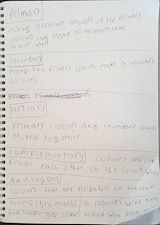 Primary
using different amount of the primary
colours can make all the colours on the
colour wheel
Secondary
using two primary colours make a secondary
colours
Tertiary
Primary colours and secondary colours
mixed together
Complementary colours opposite
from each other on the colour wheel
Analogous
colours that are neighbors on the wheel
monochromatic a colours with tints
and shades are colours mixed with